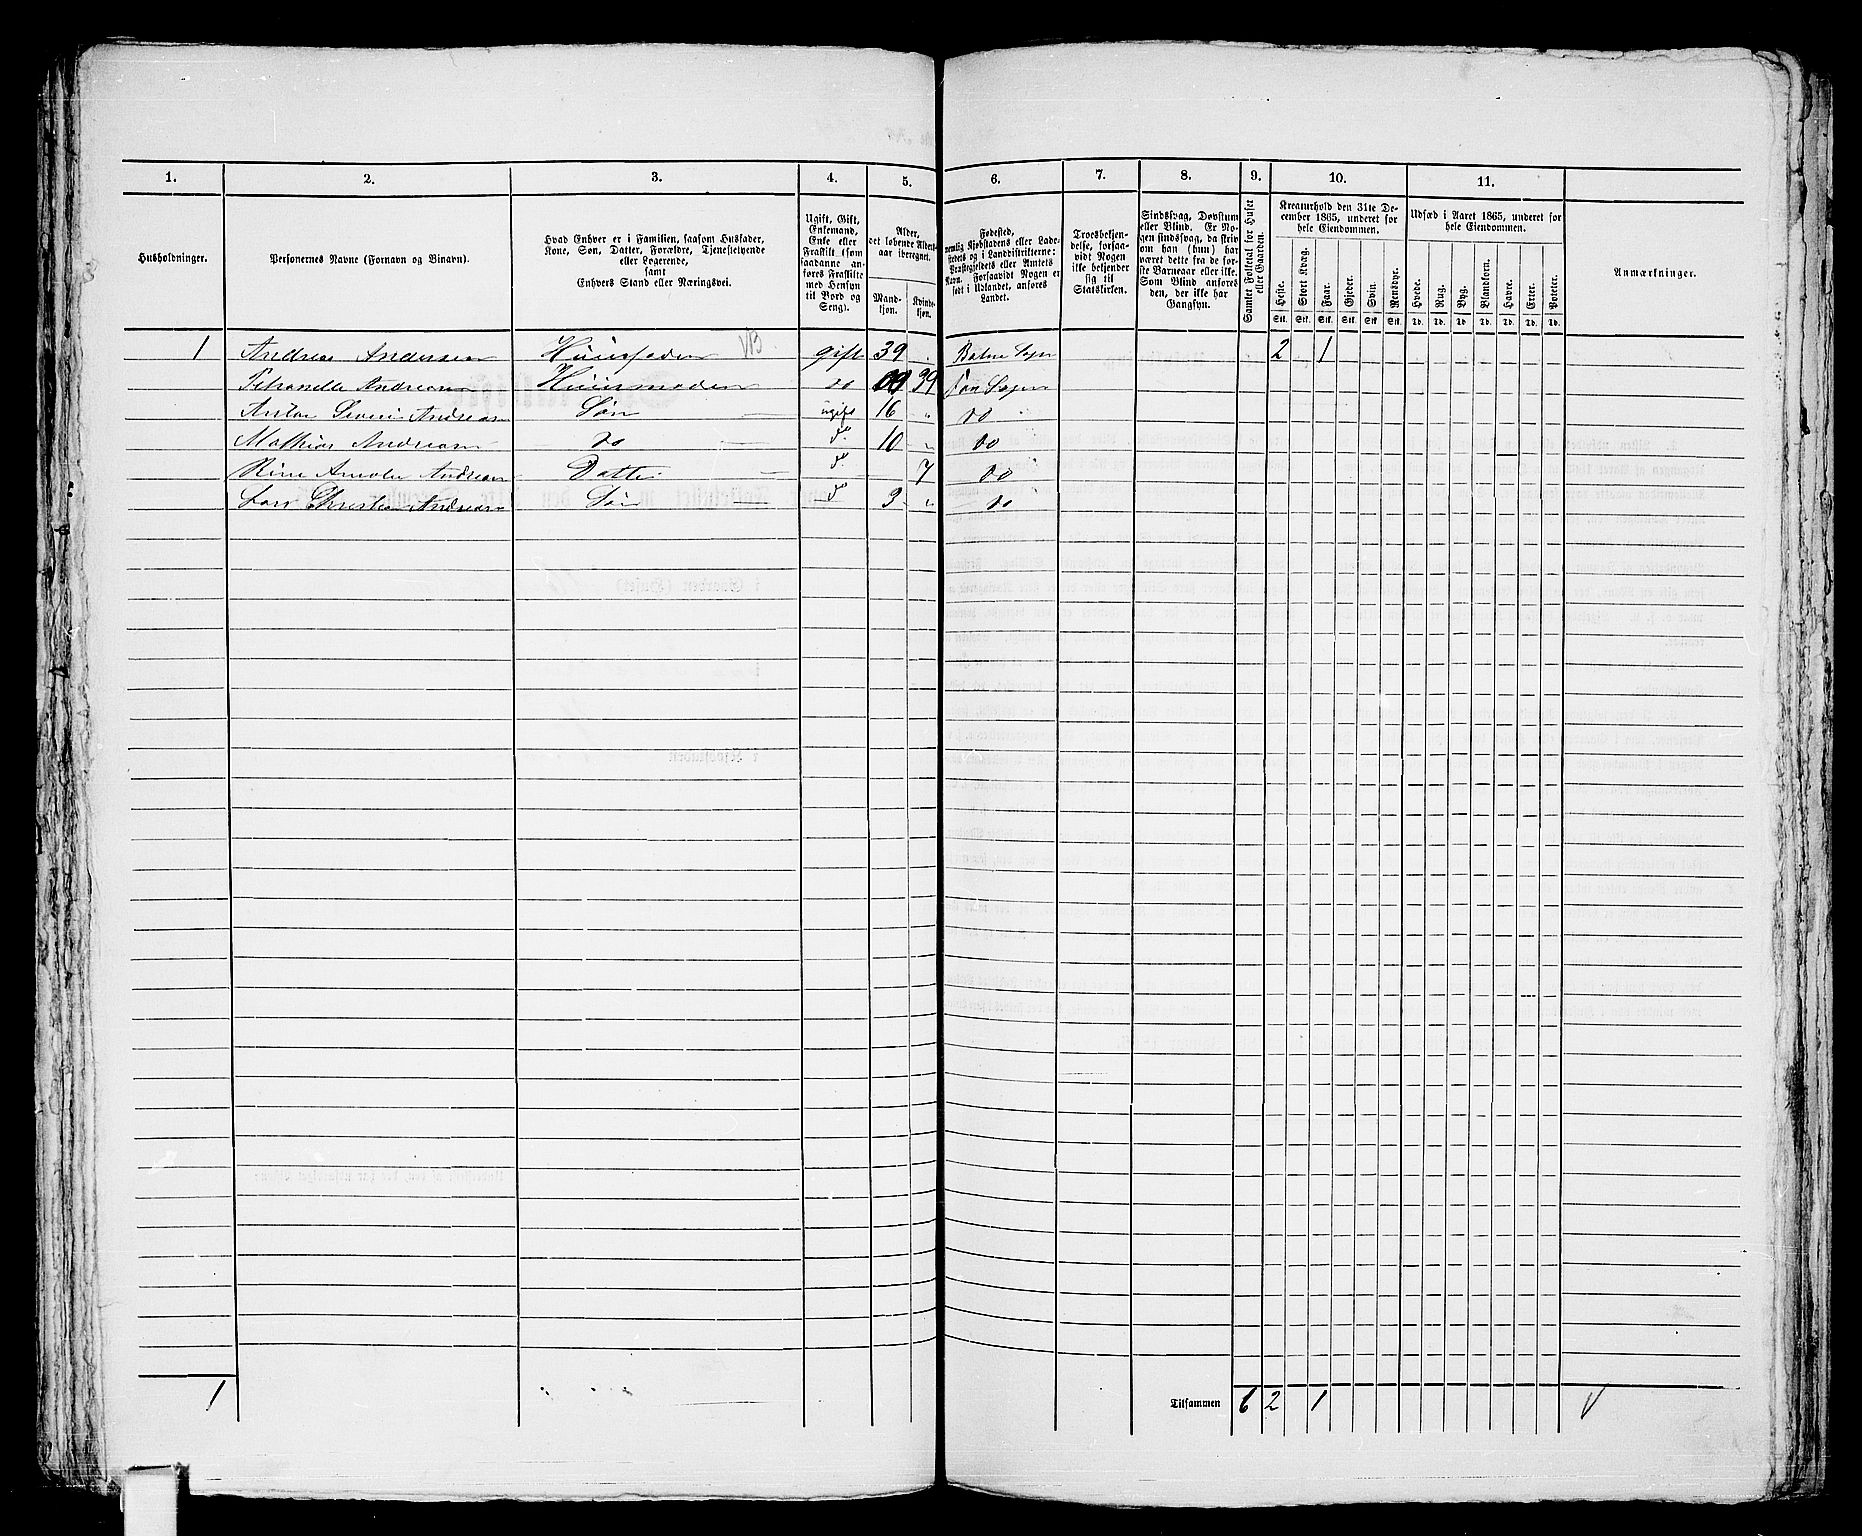 1. 2. 3. 4. 5. 6. 7. 8. 9. 10. 11.
Husholdninger.
Personernes Navne (Fornavn og Binavn).
Hvad Enhver er i Familien, saasom Husfader,
Kone, Søn, Datter, Forældre, Tjenestetyende
eller Logerende,
samt
Enhvers Stand eller Næringsvei.
Ugift, Gift,
Enkemand,
Enke eller
Fraskilt (som
saadanne an-
føres Fraskilte
med Hensyn
til Bord og
Seng).
Alder,
det løbende Alders-
aar iberegnet.
Mand-
kjøn.
Kvinde-
kjøn.
Fødested,
nemlig Kjøbstadens eller Lade-
stedets og i Landdistrikterne:
Præstegjeldets eller Amtets
Navn. Forsaavidt Nogen er
født i Udlandet, anføres
Landet.
Troesbekjen-
delse, forsaa-
vidt Nogen
ikke bekjender
sig til
Statskirken.
Sindssvag, Døvstum
eller Blind. Er No-
gen sindssvag, da skriv
om han (hun) har
været dette fra de før-
ste Barneaar eller ikke.
Som Blind anføres
den, der ikke har
Gangsyn.
Samlet Folketal for Huset
eller Gaarden.
Kreaturhold den 31te De-
cember 1865, underet for
hele Eiendommen.
Heste. Stort Kvæg. Faar. Gjeder. Svin. Rensdyr.
Stk. Stk. Stk. Stk. Stk. Stk.
Udsæd i Aaret 1865, underet for
hele Eiendommen.
Hvede. Rug. Byg. Blandkorn. Havre. Erter. Poteter.
Td. Td. Td. Td. Td. Td. Td.
Anmærkninger.
1 Andreas Andersen Huusfader gift 39 2 1
Petronelle Andreasen Huusmoder do 39
Anton Andreasen Søn ugift 16 " do
Mathias Andreasen do 10 " do
Andreasen Datter 7 do
Lars Christian Andreasen Søn 3 " do
1 Tilsammen 6 2 1